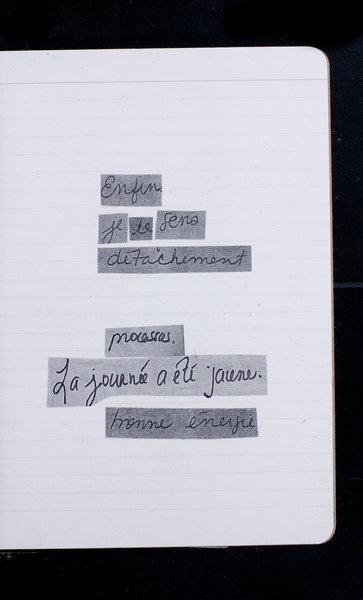 Enfin
je te sens
détachement
processus.
La journée a été jaune.
bonne énergie